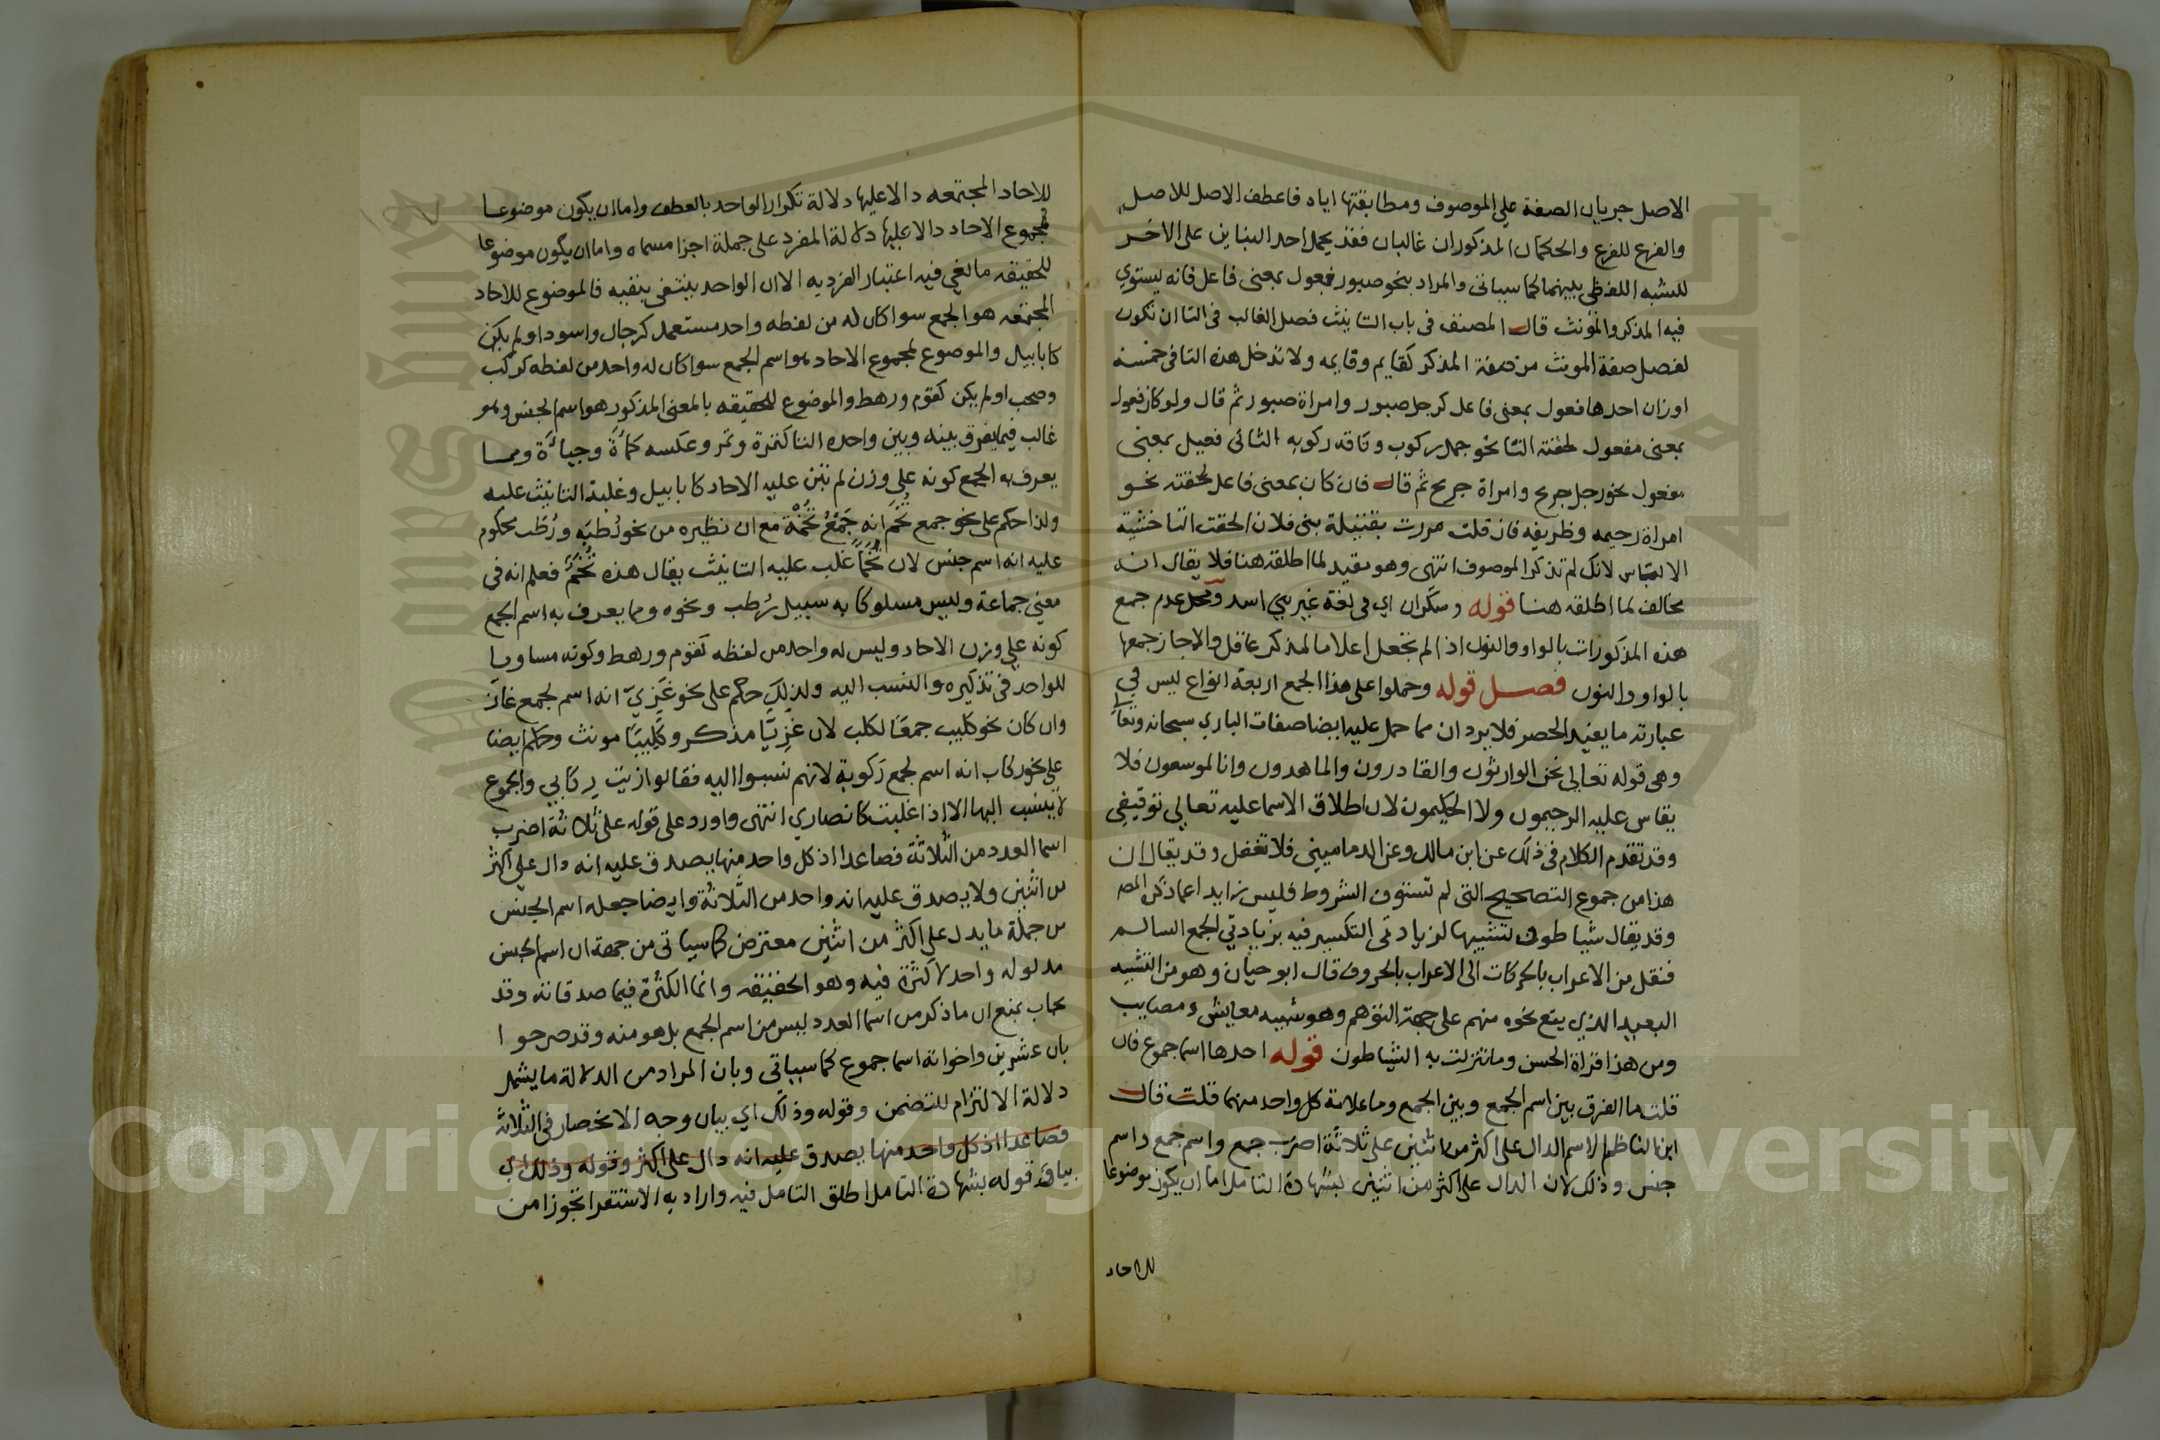 الاصل جريان الصفة على الموصوف ومطابقتها اياه فاعطف الاصل للاصل
والفرع للفرع والحكمان المذكوران غالبان فقد يحمل احد البنابن على الاخر
للشبه اللفظي بينهما كما سياتي والمراد بنحو صبور فعول بمعنى فاعل فانه يستوي
فيه المذكر والمؤنث قال المصنف فى باب التانيث فصل الغالب فى التا ان تكون
لفصل صفة المونث من صفة المذكر كقايم وقايمه ولا تدخل هذه التا فى خمسة
اوزان احدها فعول بمعنى فاعل كرجل صبور وامراة صبور ثم قال ولو كان فعول
بمعنى مفعول لحقته التا نحو جمل ركوب وناقه ركوبه الثانى فعيل بمعنى
مفعول نحو رجل جريح وامراة جريح ثم قال فان كان بمعنى فاعل لحقته نحو
امراة رحيمه وظريفه فان قلت مررت بقتيلة بنى فلان الحقت التا خشية
الالتباس لانك لم تذكر الموصوف انتهى وهو مقيد لما اطلقه هنا فلا يقال انه
مخالف لما اطلقه هنا قوله وسكران اي فى لغة غير بني اسد ومحل عدم جمع
هذه المذكورات بالواو والنون اذا لم تجعل اعلاما لمذكر عاقل والا جاز جمعها
بالواو والنون فصل قوله وحملوا على هذا الجمع اربعة انواع ليس في
عبارته ما يفيد الحصر فلا يرد ان مما حمل عليه ايضا صفات الباري سبحانه وتعا
وهى قوله تعالى نحن الوارثون والقادرون والماهدون وانا لموسعون فلا
يقاس عليه الرحيمون ولا الحكيمون لان اطلاق الاسما عليه تعالي توقيفي
وقد تقدم الكلام فى ذلك عن ابن مالك وعن الدماميني فلا تغفل وقد يقال ان
هذا من جموع التصحيح التى لم تستوف الشروط فليس زايد اعما ذكره المصـ
وقد يقال شياطون تشبيها لزيادتى التكسير فيه بزيادتي الجمع السالم
فنقل من الاعراب بالحركات الى الاعراب بالحروف قال ابو حيان وهو من التشبيه
البعيد الذي يقع نحوه منهم على جهة التوهم وهو شبيه معايش ومصايب
ومن هذا قراة الحسن وما تنزلت به الشياطون قوله احدها اسما جموع فان
قلت ما الفرق بين اسم الجمع وبين الجمع وما علامة كل واحد منهما قلت قال
ابن الناظم الاسم الدال على اكثر من اثنين على ثلاثة اضرب جمع واسم جمع واسم
جنس وذلك لان الدال على اكثر من اثنين بشهادة التامل اما ان يكون موضوعا
للاحاد
للاحاد المجتمعه دالا عليها دلالة تكرار الواحد بالعطف واما ان يكون موضوعا
لمجموع الاحاد دالا عليها دلالة المفرد على جملة اجزا مسماه واما ان يكون موضوعا
للحقيقه ملغي فيه اعتبار الفرديه الا ان الواحد ينتفى بنفيه فالموضوع للاحاد
المجتمعه هو الجمع سوا كان له من لفظه واحد مستعمل كرجال واسود او لم يكن
كابابيل والموضوع لمجموع الاحاد هو اسم الجمع سوا كان له واحد من لفظه كركب
وصحب او لم يكن كقوم ورهط والموضوع للحقيقه بالمعنى المذكور هو اسم الجنس وهو
غالب فيما يفرق بينه وبين واحده التا كتمرة وتمر وعكسه كمأة وجبأة ومما
يعرف به الجمع كونه علي وزن لم تبن عليه الاحاد كابابيل وغلبة التانيث عليه
ولذا حكم على نحو جمع تُخَم انه جَمْعُ تُخَمْة مع ان نظيره من نحو رُطبَه ورُطَب محكوم
عليه انه اسم جنس لان تُخَمًا غلب عليه التانيث يقال هذه تُخَمٌ فعلم انه فى
معنى جماعة وليس مسلوكا به سبيل رُطب ونحوه ومما يعرف به اسم الجمع
كونه علي وزن الاحاد وليس له واحد من لفظه كقوم ورهط وكونه مساويا
للواحد فى تذكيره والنسب اليه ولذلك حكم على نحو غَزِيّ انه اسم لجمع غاز
وان كان نحو كليب جمعًا لكلب لان غَزِيًّا مذكر وكَلِيبًا مونث وحكم ايضا
على نحو ركاب انه اسم لجمع رَكوبة لانهم نسبوا اليه فقالوا زيت ركابي والجموع
لا ينسب اليها الا اذا غلبت كانصاري انتهى واورد على قوله على ثلاثة اضرب
اسما العدد من الثلاثة فصاعدا اذ كل واحد منها يصدق عليه انه دال على اكثر
من اثنين ولا يصدق عليه انه واحد من الثلاثة وايضا جعله اسم الجنس
من جملة ما يدل على اكثر من اثنين معترض كما سياتى من جهة ان اسم الجنس
مدلوله واحد لا كثرة فيه وهو الحقيقه وانما الكثرة فيما صدقاته وقد
يجاب بمنع ان ما ذكر من اسما العدد ليس من اسم الجمع بل هو منه وقد صرحوا
بان عشرين واخواته اسما جموع كما سياتى وبان المراد من الدلالة ما يشمل
دلالة الالتزام للتضمن وقوله وذلك اي بيان وجه الانحصار فى الثلاثة
فصاعدا اذ كل واحد منها يصدق عليه انه دال على اكثر وقوله وذلك اي
بيان قوله بشهادة التامل اطلق التامل فيه واراد به الاستقرا تجوزا من